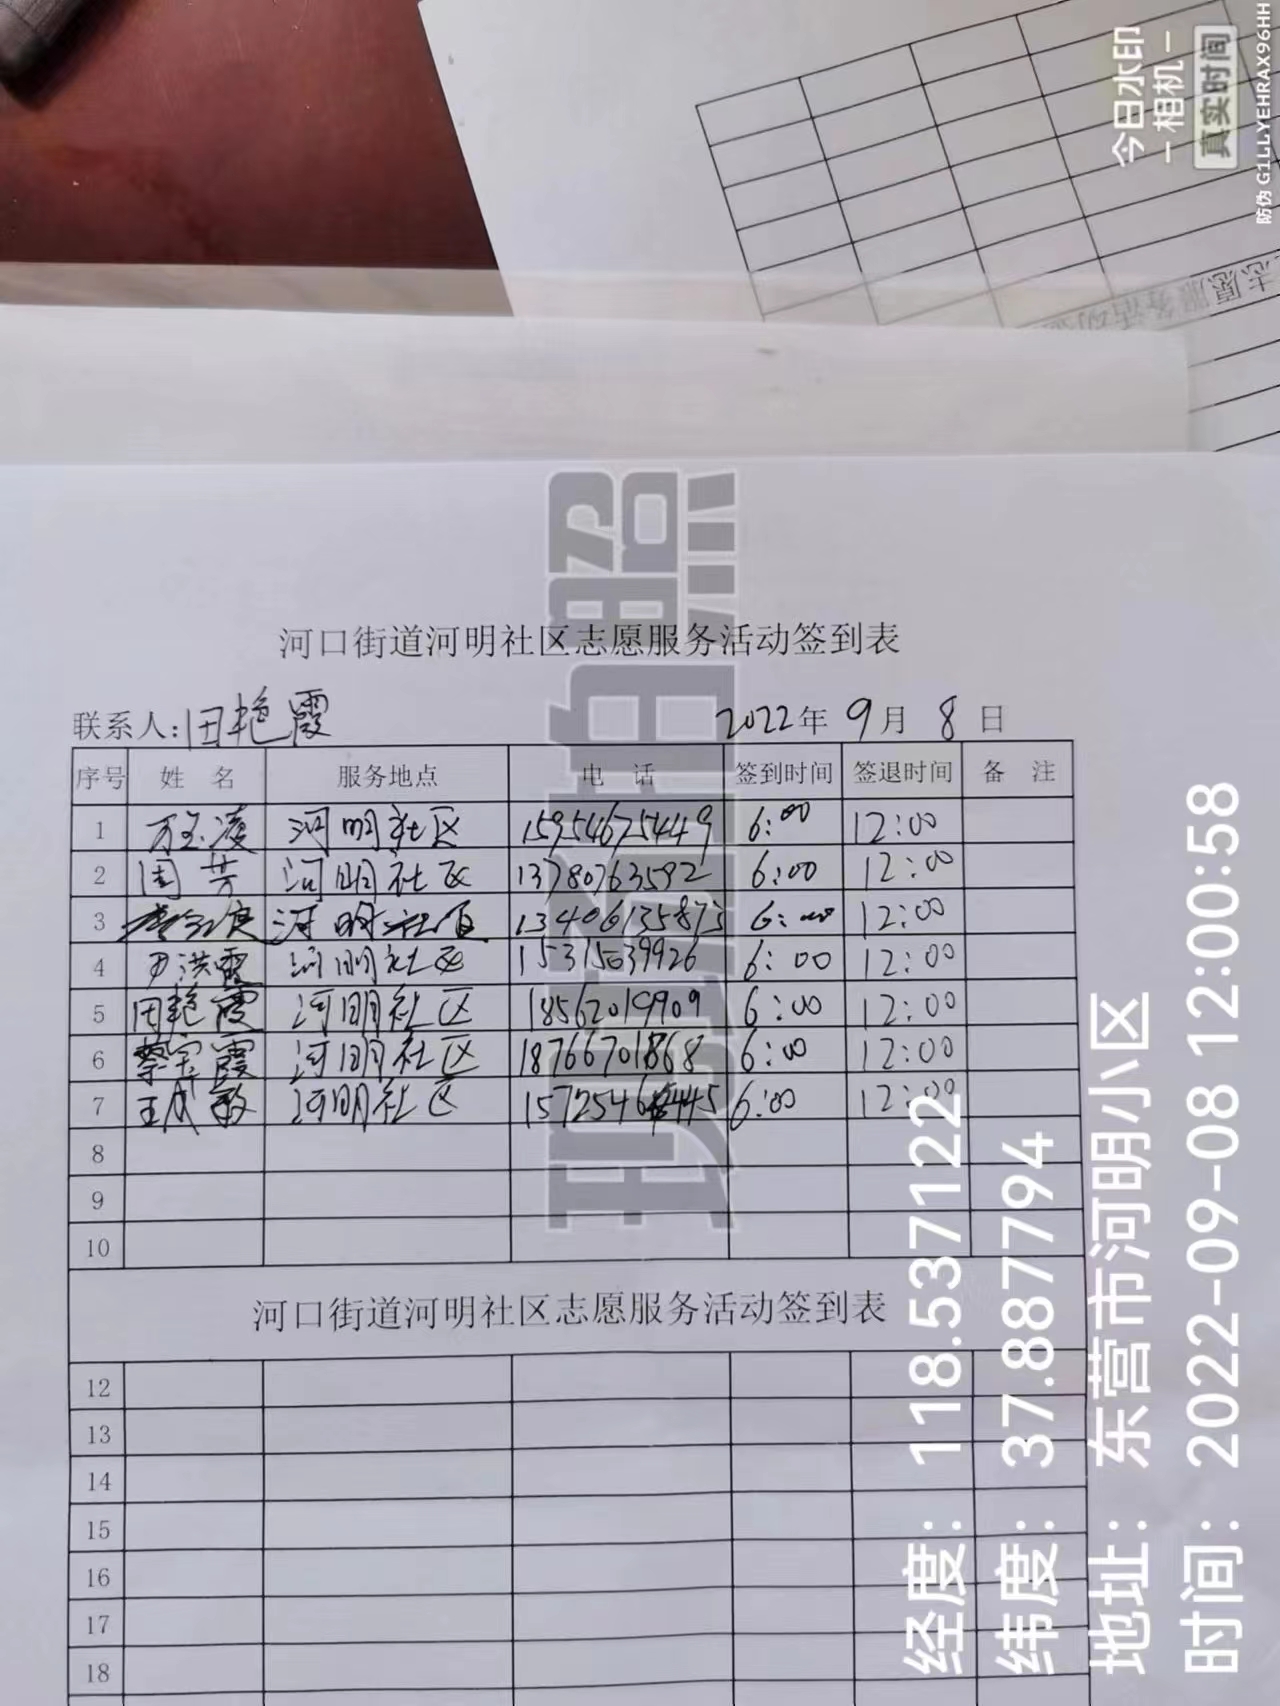 今日水印
－相机－
真实时间
防伪 G1LLYEHRAX96HH
志愿服务活动
现场拍照
河口街道河明社区志愿服务活动签到表
联系人:田艳霞 2022年 9月 8日
序号 姓 名 服务地点 电 话 签到时间 签退时间 备 注
1 万玉凌 河明社区 15954675449 6:00 12:00
2 周芳 河明社区 13780763592 6:00 12:00
3 河明社区 13406135873 6:00 12:00
4 尹洪霞 河明社区 15315039926 6:00 12:00
5 田艳霞 河明社区 18562019909 6:00 12:00
6 蔡宝霞 河明社区 18766701868 6:00 12:00
7 王成敏 河明社区 6:00 12:00
8
9
10
河口街道河明社区志愿服务活动签到表
12
13
14
15
16
17
18
经度：118.537122
纬度：37.887794
地址：东营市河明小区
时间：2022-09-08 12:00:58